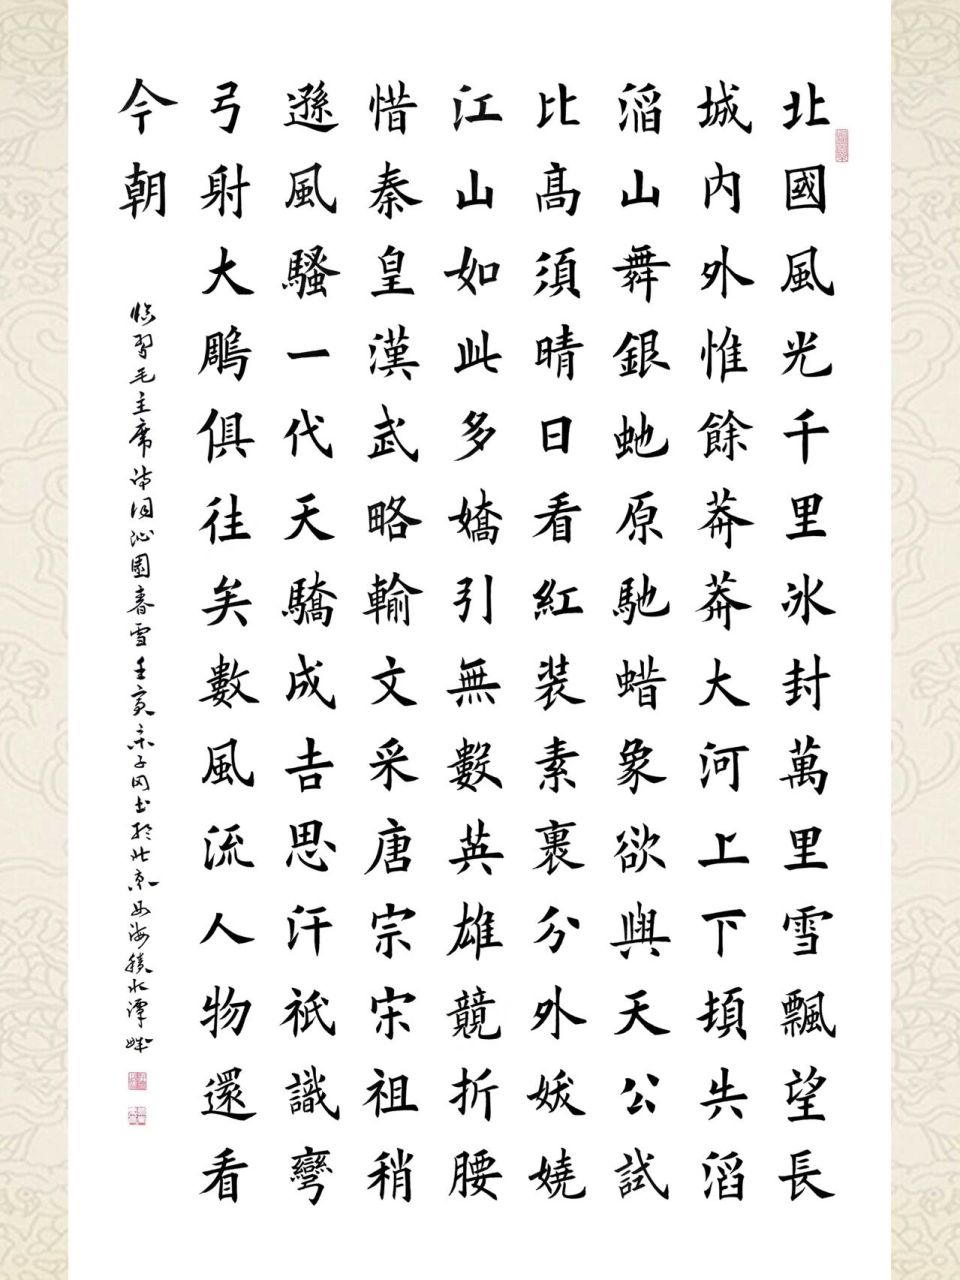 北國風光千里冰封萬里雪飄望長
城内外惟餘莽莽大河上下頓失滔
滔山舞銀虵原馳蜡象欲與天公試
比髙須晴日看紅装素裹分外妖嬈
江山如此多嬌引無數英雄競折腰
惜秦皇漢武略輸文采唐宗宋祖稍
遜風騷一代天驕成吉思汗祇識彎
弓射大鵰俱往矣數風流人物還看
今朝
临習毛主席诗词沁園春雪壬寅书於北京西海积水潭畔